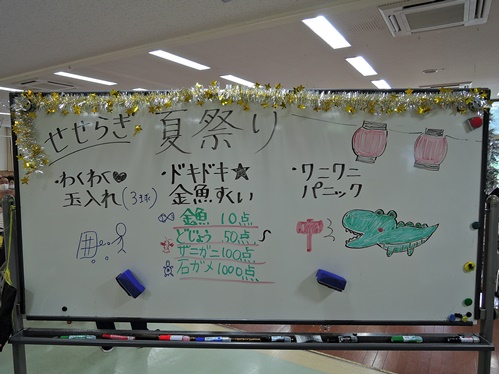 せせらぎ 夏祭り
・わくわく♥
玉入れ(3球)
・ドキドキ★
金魚すくい
金魚 10点
どじょう 50点
ザニガニ 100点
石ガメ 1000点
・ワニワニ
パニック